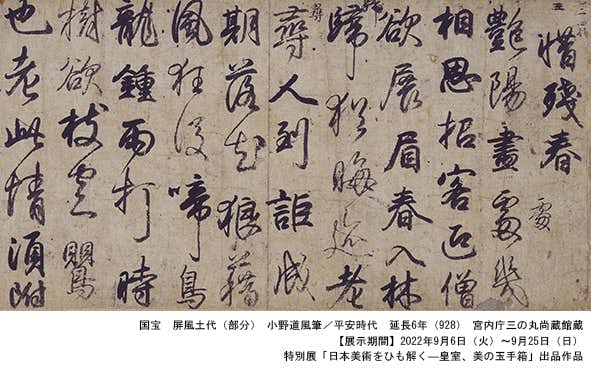 惜殘春
艷陽盡處幾
處
相思招客迎僧
欲展眉春入林
歸猶晦迹老
尋人到詎成
尋
期落花狼藉
風狂後啼鳥
龍鍾雨打時
樹欲枝空鶯
也老此情須附
国宝 屏風土代（部分） 小野道風筆／平安時代 延長6年（928） 宮内庁三の丸尚蔵館蔵
【展示期間】2022年9月6日（火）～9月25日（日）
特別展「日本美術をひも解く―皇室、美の玉手箱」出品作品